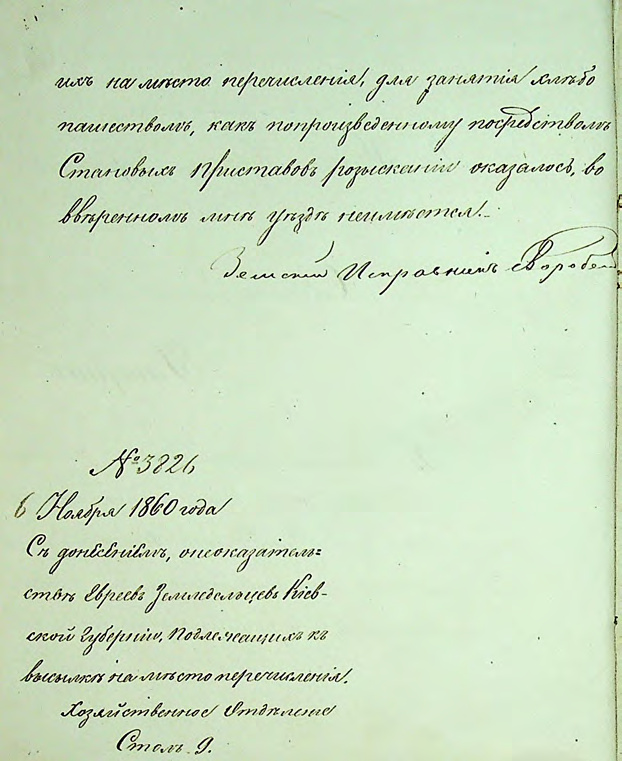 ихъ на мѣсто перечисленія, для занятія хлѣбо
пашествомъ, какъ попроизведенному посредствомъ
Становыхъ Приставовъ розысканіи оказалось, во
ввѣренномъ мнѣ уѣздѣ неимѣется.
Земскій Исправникъ
№ 3826
6 Ноября 1860 года
Съ донесеніемъ, онеоказатель=
ствѣ Евреевъ Земледельцевъ Кіев-
ской Губерніи, подлежащихъ къ
высылкѣ на мѣсто перечисленія.
Хозяйственное Отдѣленіе
Столъ 9.